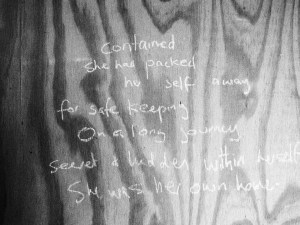 Contained
she has packed
her self away
for safe keeping
On a long journey
secret & hidden within herself
She was her own home.